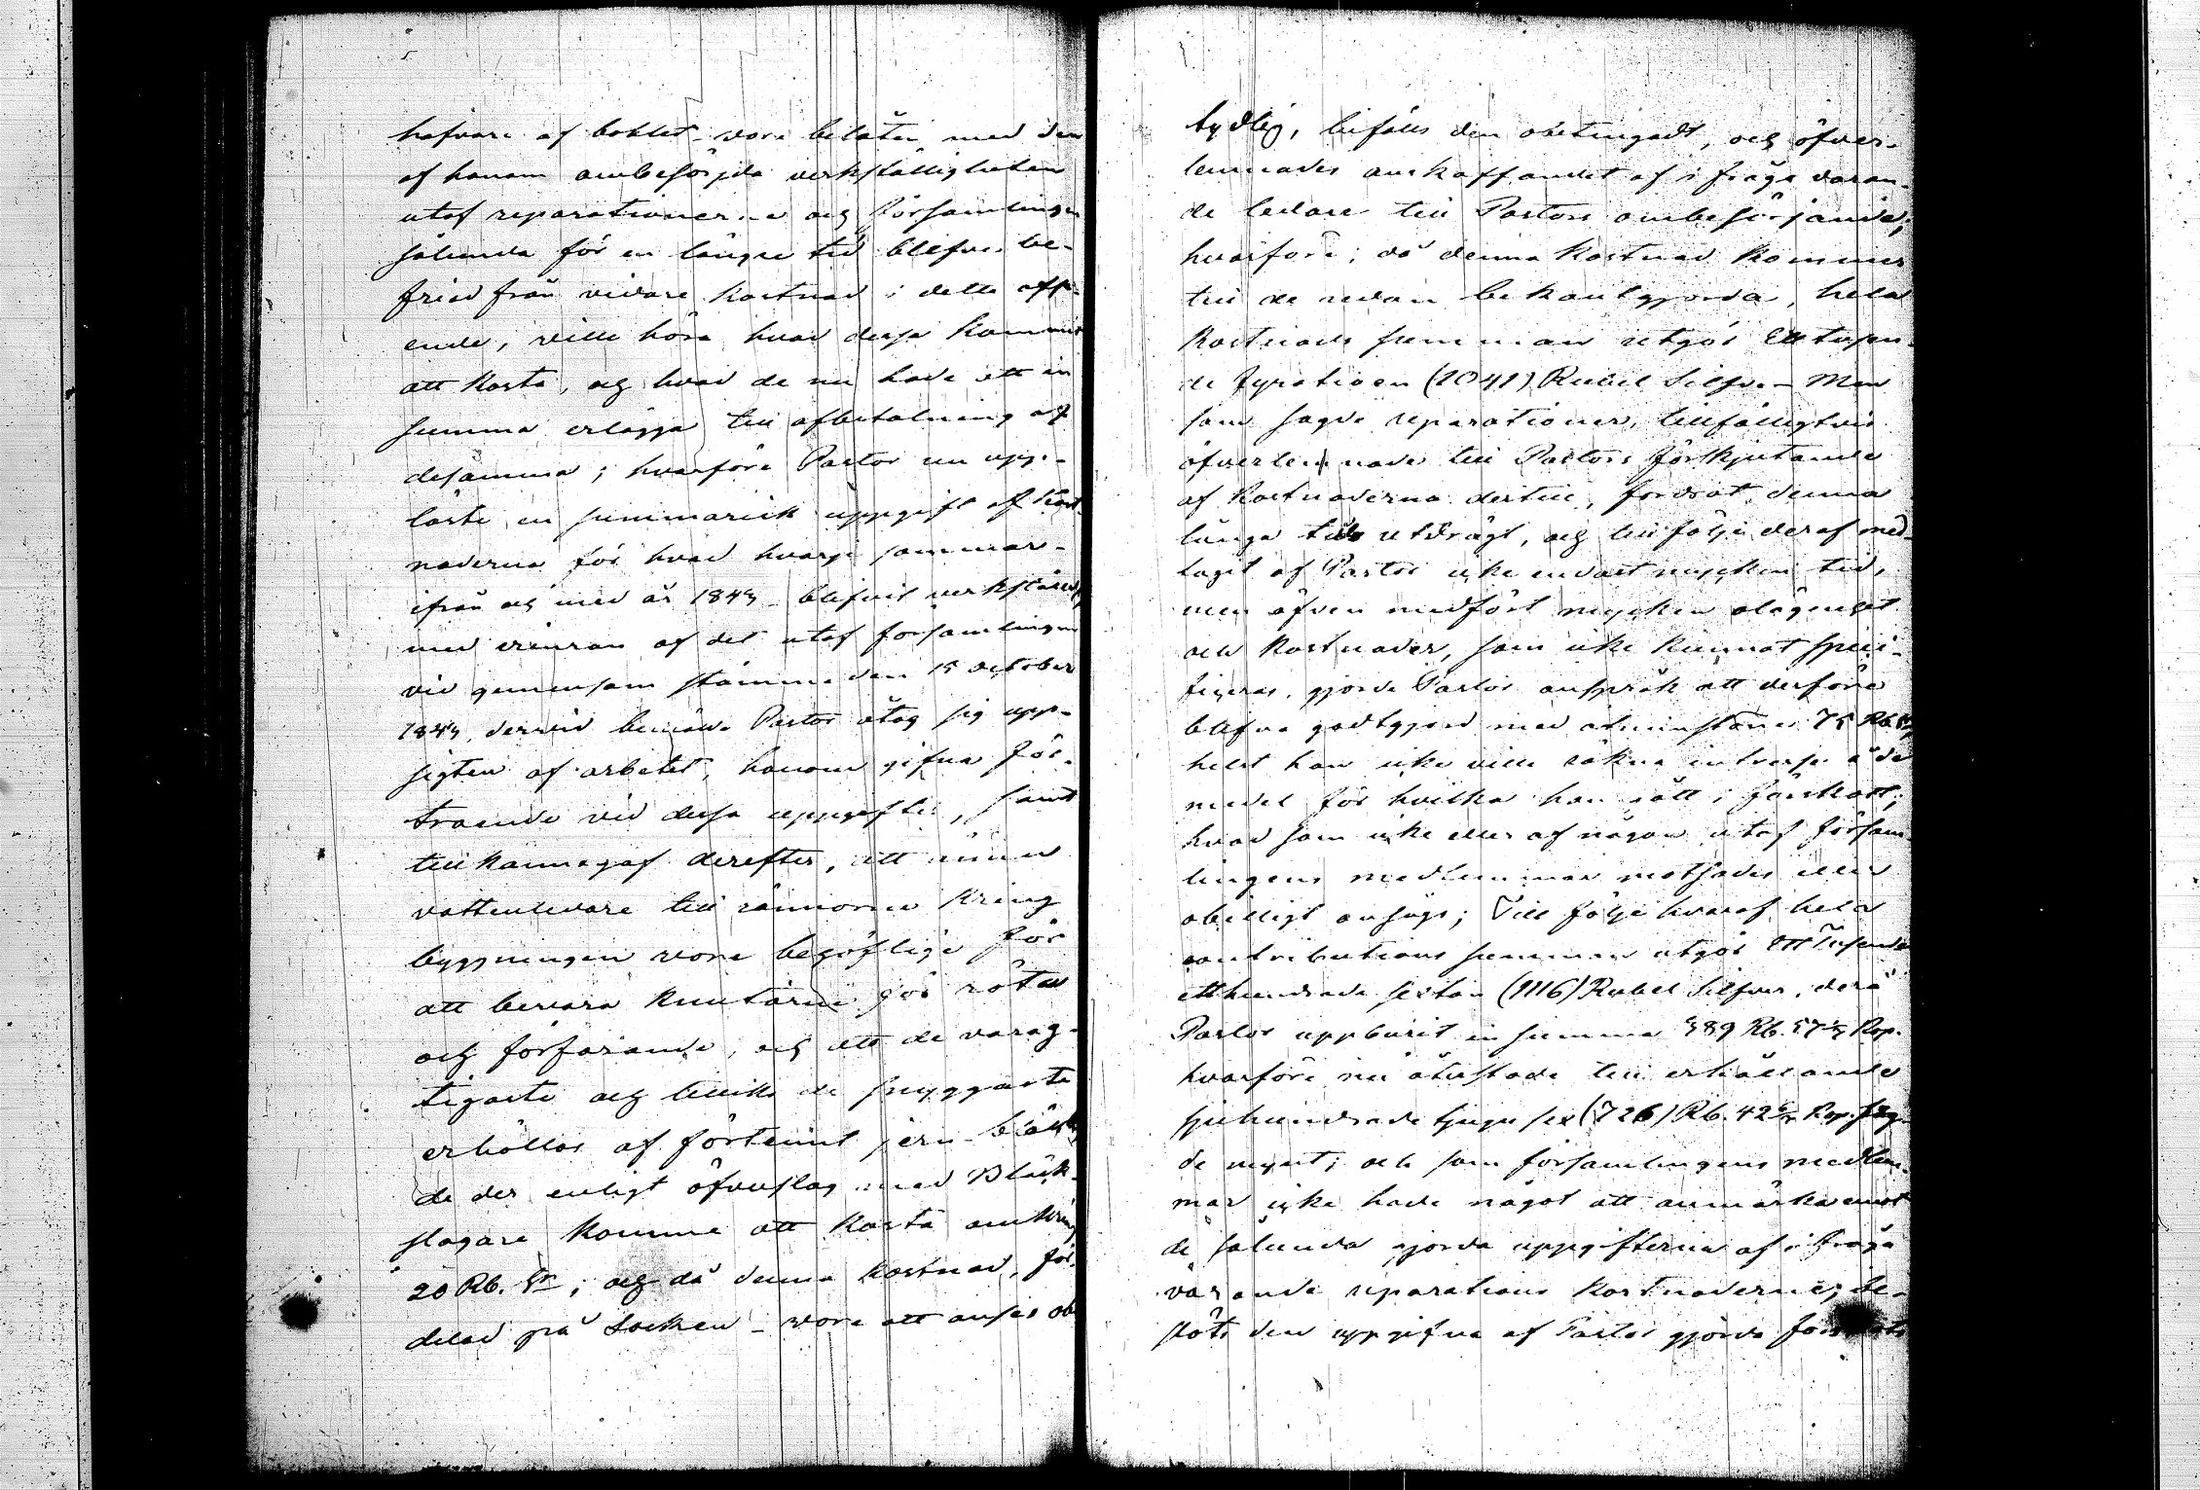 hafvare af bohlet vore belåtne med den
af honom ombesörjda verkställigheten
utaf reparationerne och församlingen
sålunda för en längre tid blefve be-
friad från vidare kostnad i detta aff-
ende, ville höra hvad dessa kommit
att kosta, och hvad de nu hade att in
summa erlägga till afbetalning af
desamma; hvarföre Pastor nu upp-
läste en summarisk uppgift af kost-
naderna för hvad hvarje sommar
ifrån och med år 1843 blifvit verkstäldt,
med erinran af det utaf församlingen
vid gemensam stämma den 15 october
1843, dervid bemälde Pastor åtog sig upp-
sigten af arbetet, honom gifna för-
troende vid dessa uppgifter, samt
tillkännagaf derefter, att
vattenledare till rännorna kring
byggningen vore behöflige för
att bevara knutarne för röta
och förfarande, och att de varag-
tigaste och tillika de snyggaste
erhölles af förtennt jern-bläck,
de der enligt öfverslag med Bläck-
slagare komme att kosta omkring
20 Rb. Sr; och då denna kostnad, för-
delad på Socken - vore att anses obe-
tydlig, bifölls den obetingadt, och öfver-
lemnades anskaffandet af i fråga varan-
de ledare till Pastors ombesörjande;
hvarföre, då denna kostnad kommer
till de redan bekantgjorda, hela
kostnads summan utgör Ett tusen-
de fyratioen (1041) Rubel Silfver. - Men
som sagde reparationer, tillfälligtvis
öfverlemnade till Pastors förskjutande
af kostnaderna dertill, fordrat denna
långa tids utdrägt, och till följe deraf med-
tagit af Pastor icke endast mycken tid,
men äfven medfört mycken olägenhet
och kostnader, som icke kunnat speci-
ficeras, gjorde Pastor anspråk att derföre
blifva godtgjord med åtminstone 75 Rb Sr,
helst han icke ville räkna intresse å de
medel för hvilka han sått i förskott;
hvad som icke eller af någon utaf försam-
lingens medlemmar motsades eller
obilligt ansågs; Till följe hvaraf hela
contributions summan utgör Ett Tusende
etthundrade sexton (1116) Rubel Silfver, derå
Pastor uppburit en summa 389 Rb. 57 Kop.
hvarföre nu återstode till erhållande
sjuhundrade tjugu sex (726) Rb. 42 Kop. säg-
de mynt; och som församlingens medlem-
mar icke hade något att anmärka emot
de sålunda gjorda uppgifterna af i fråga
varande reparations kostnaderne; be-
slöts den uppgifna af Pastor gjorda